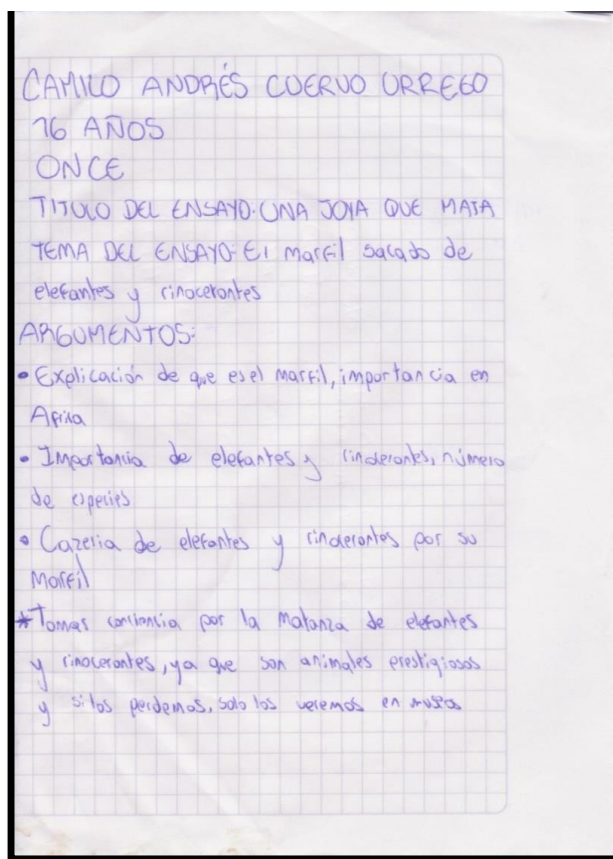 CAMILO ANDRÉS CUERVO URREGO
16 AÑOS
ONCE
TITULO DEL ENSAYO: UNA JOYA QUE MATA
TEMA DEL ENSAYO: El marfil sacado de
elefantes y rinocerontes
ARGUMENTOS:
• Explicación de que es el marfil, importancia en
Africa
• Importancia de elefantes y rinocerontes, número
de especies
• Cazeria de elefantes y rinocerontes por su
Marfil
* Tomar conciencia por la matanza de elefantes
y rinocerontes, ya que son animales prestigiosos
y si los perdemos, solo los veremos en museos